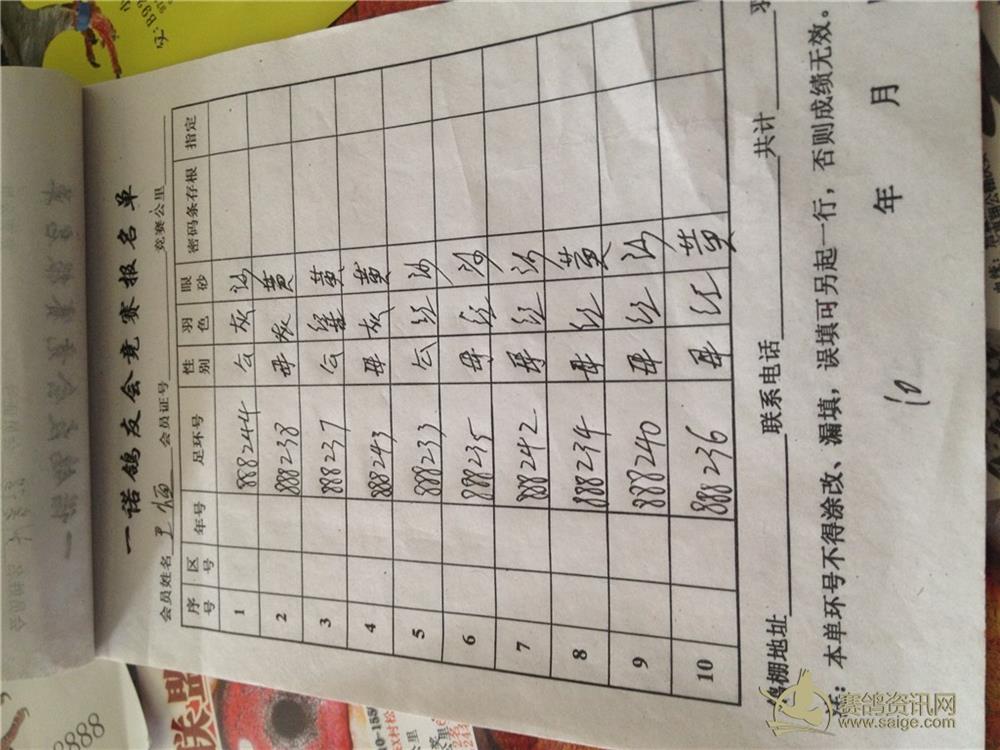 一诺鸽友会竞赛报名单
会员姓名 会员证号 竞赛公里
序号 区号 年号 足环号 性别 羽色 眼砂 密码条存根 指定
1 888244 公 灰 沙
2 888238 母 灰 黄
3 888237 公 黄
4 888243 母 灰 黄
5 888233 公 红 沙
6 888235 母 红 沙
7 888242 母 红 沙
8 888234 母 红 黄
9 888240 母 红 沙
10 888236 母 红 黄
鸽棚地址 联系电话 共计 羽
注：本单环号不得涂改、漏填，误填可另起一行，否则成绩无效。
年 月
10
联盟
8888
赛鸽资讯网
www.saige.com